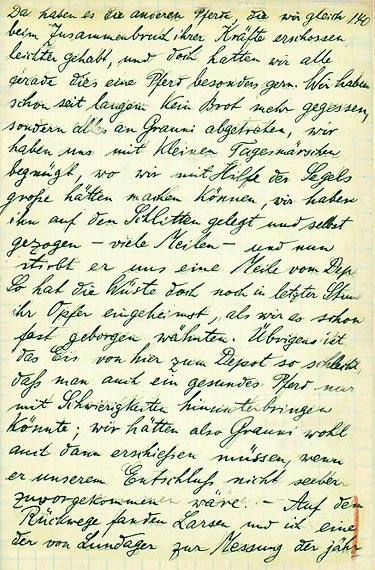 Da haben es die anderen Pferde, die wir gleich 140
beim Zusammenbruch ihrer Kräfte erschossen,
leichter gehabt, und doch hatten wir alle
gerade dies eine Pferd besonders gern. Wir haben
schon seit langem kein Brot mehr gegessen,
sondern alles an Grauni abgetreten, wir
haben uns mit kleinen Tagesmärschen
begnügt, wo wir mit Hilfe des Segels
große hätten machen können, wir haben
ihn auf den Schlitten gelegt und selbst
gezogen – viele Meilen – und nun
stirbt er uns eine Meile vom Dep
So hat die Wüste doch noch in letzter Stun
ihr Opfer eingeheimst, als wir es schon
fast geborgen wähnten. Übrigens ist
das Eis von hier zum Depot so schlecht,
daß man auch ein gesundes Pferd nur
mit Schwierigkeiten hinunterbringen
könnte; wir hätten also Grauni wohl
auch dann erschießen müssen, wenn
er unserem Entschluß nicht selber
zuvorgekommen wäre. – Auf dem
Rückwege fanden Larsen und ich eine
der von Lundager zur Messung der jähr